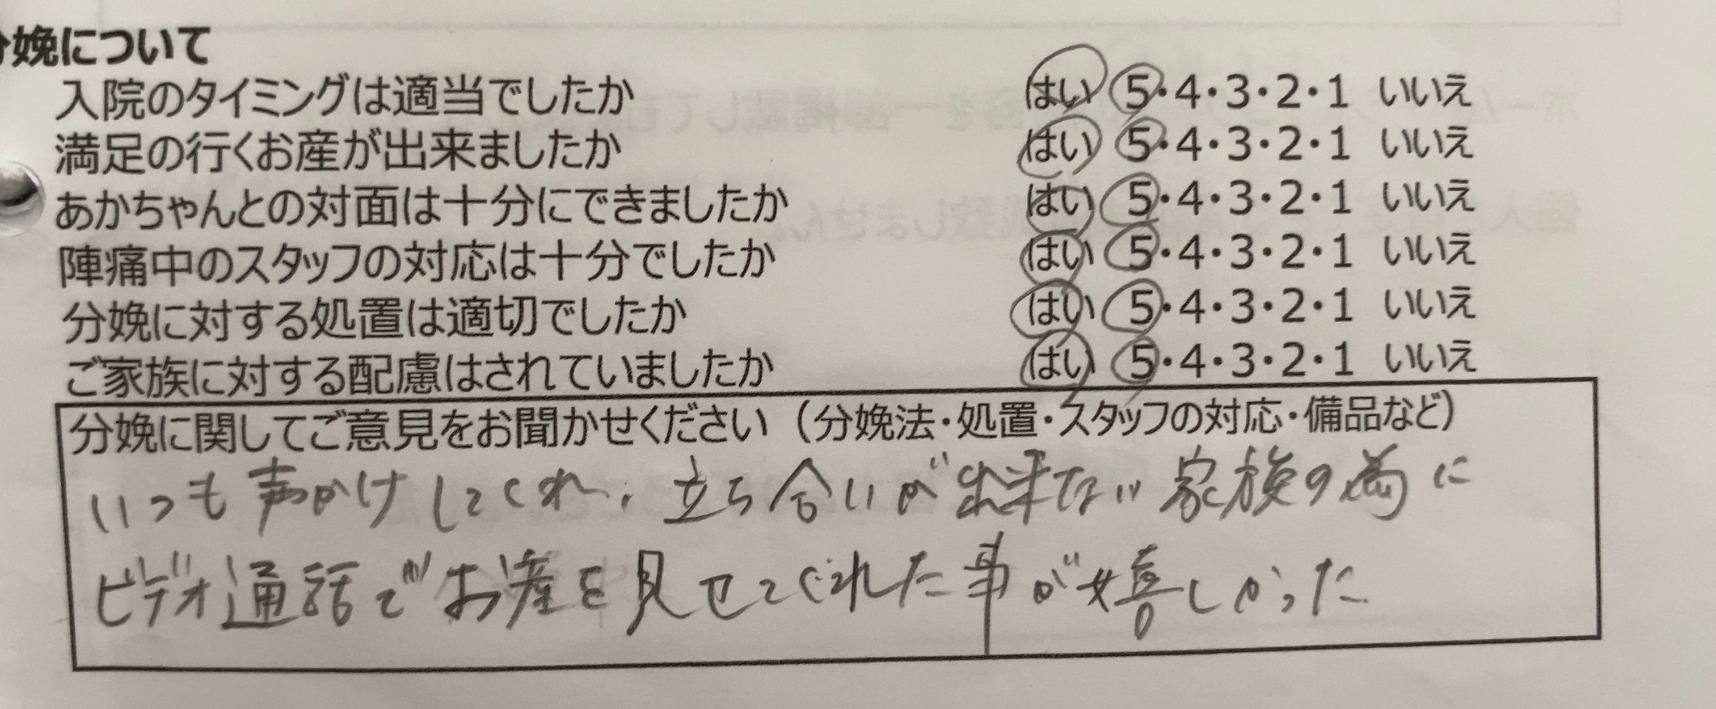 分娩について
入院のタイミングは適当でしたか はい 5・4・3・2・1 いいえ
満足の行くお産が出来ましたか はい 5・4・3・2・1 いいえ
あかちゃんとの対面は十分にできましたか はい 5・4・3・2・1 いいえ
陣痛中のスタッフの対応は十分でしたか はい 5・4・3・2・1 いいえ
分娩に対する処置は適切でしたか はい 5・4・3・2・1 いいえ
ご家族に対する配慮はされていましたか はい 5・4・3・2・1 いいえ
分娩に関してご意見をお聞かせください（分娩法・処置・スタッフの対応・備品など）
いつも声かけしてくれ、立ち合いが出来ない家族の為に
ビデオ通話でお産を見せてくれた事が嬉しかった